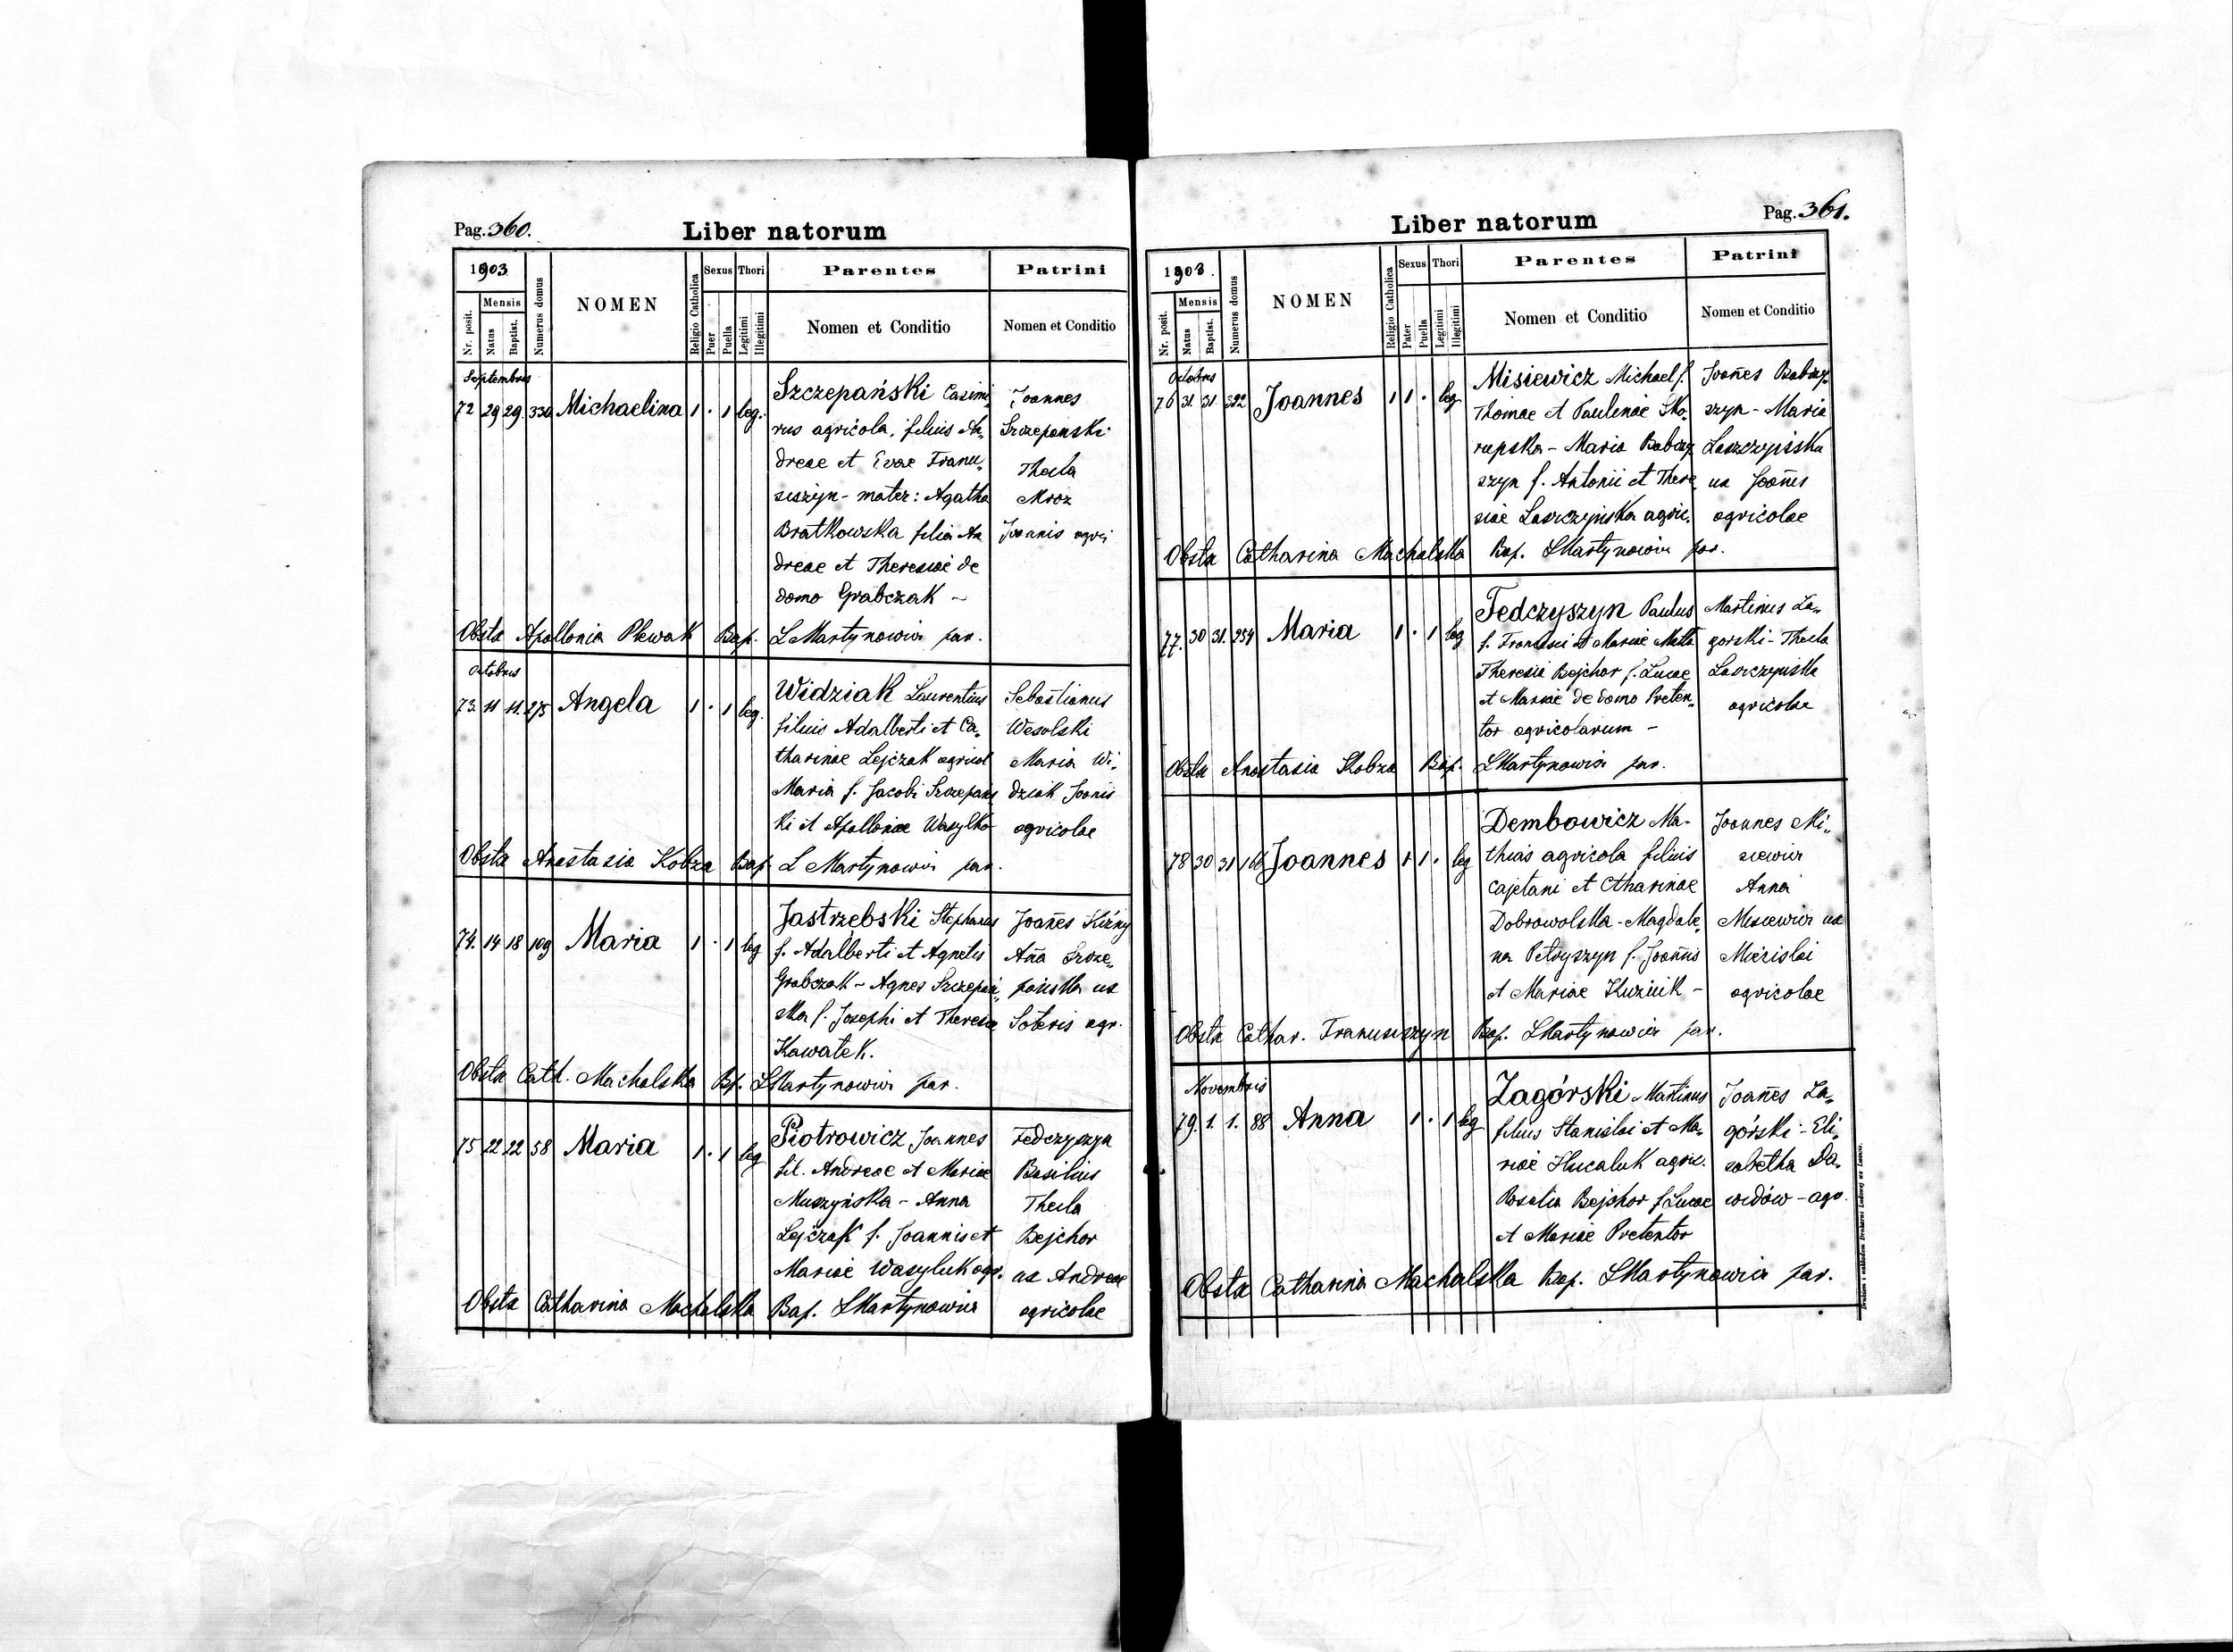 Pag. 360.
Liber natorum
1903
Nr. posit.
Mensis
Natus
Baptist.
Numerus domus
NOMEN
Religio Catholica
Sexus
Puer
Puella
Thori
Legitimi
Illegitimi
Parentes
Nomen et Conditio
Patrini
Nomen et Conditio
Septembris
72 29 29. 330 Michaelina 1 · 1 leg.
Szczepański Casimi„
rus agricola, filius An„
dreae et Evae Franu„
siszyn - mater: Agatha
Bratkowska filia An
dreae et Theresiae de
domo Grabczak -
Joannes
Szczepanski
Thecla
Mroz
Joannis agri
Obstx Apollonia Plewak Bap. L Martynowicz par.
Octobris
73. 11 11. 275 Angela 1 · 1 leg.
Widziak Laurentius
filius Adalberti et Ca„
tharinae Lejczak agricol
Maria f. Jacobi Szczepańs
ki et Apolloniae Wasylko
Sebastianus
Wesolski
Maria Wi„
dziak Joanis
agricolae
Obstx Anastasia Kobza Bap L Martynowicz par.
74. 14 18 109 Maria 1 · 1 leg
Jastrzębski Stephanus
f. Adalberti et Agnetis
Grabczak - Agnes Szczepań„
ska f. Josephi et Theresiae
Kawałek.
Joañes Kiżny
Aña Szcze„
pańska ux
Soteris agr.
Obstx Cath. Machalska Bp. L Martynowicz par.
75 22 22 58 Maria 1 · 1 leg
Piotrowicz Joannes
fil. Andreae et Mariae
Muszyńska - Anna
Lejczak f. Joannis et
Mariae Wasyluk agr.
Fedczyszyn
Basilius
Thecla
Bejchor
ux Andreae
agricolae
Obstx Catharina Machalska Bap. L Martynowicz
Liber natorum
Pag. 361.
1903.
Nr. posit.
Mensis
Natus
Baptist.
Numerus domus
NOMEN
Religio Catholica
Sexus
Pater
Puella
Thori
Legitimi
Illegitimi
Parentes
Nomen et Conditio
Patrini
Nomen et Conditio
Octobris
76 31. 31 322 Joannes 1 1 · leg
Misiewicz Michael f.
Thomae et Paulinae Sko„
rupska - Maria Babczy
szyn f. Antonii et There„
siae Laszczyńska agric.
Joañes Babczy„
szyn - Maria
Laszczyńska
ux Joañis
agricolae
Obstx Catharina Machalska Bap. L Martynowicz par.
77. 30 31. 254 Maria 1 · 1 leg
Fedczyszyn Paulus
f. Francisci et Mariae
Theresia Bejchor f. Lucae
et Mariae de domo Preten„
tor agricolarum -
Martinus Za„
gorski - Thecla
Laszczyńska
agricolae
Obstx Anastasia Kobza Bap. L Martynowicz par.
78 30 31 Joannes 1 1 · leg
Dembowicz Ma-
thias agricola filius
Cajetani et Ctharinae
Dobrowolska - Magdale„
na Petryszyn f. Joañis
et Mariae Kuzniik -
Joannes Mi„
siewicz
Anna
Misiewicz ux
Miecislai
agricolae
Obstx Cathar. Franusiszyn Bap. L Martynowicz par.
Novembris
79. 1. 1. 88 Anna 1 · 1 leg
Zagórski Martinus
filius Stanislai et Ma„
riae Hucaluk agric.
Rosalia Bejchor f Lucae
et Mariae Pretentor
Joañes Za„
górski - Eli„
sabetha Da„
widów - agr.
Obstx Catharina Machalska Bap. L Martynowicz par.